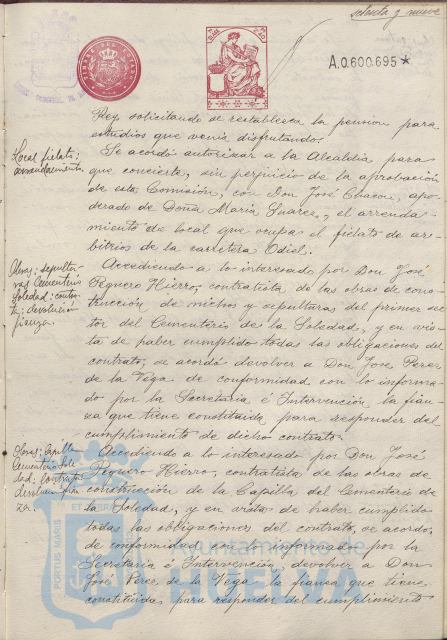 setenta y nueve
A.0.600.695*
Rey solicitando se restablezca la pension para
estudios que venía disfrutando.
Local fielato:
arrendamiento
Se acordó autorizar a la Alcaldía para
que concierte, sin perjuicio de la aprobación
de esta Comisión, con Don José Chacon, apo-
derado de Doña María Suarez, y el arrenda-
miento de local que ocupa el fielato de ar-
bitrios de la carretera Odiel.
Obras: sepultu-
ras Cementerio
Soledad: contra-
ta; devolucion
fianza.
Accediendo a lo interesado por Don José
Peguero Hierro, contratista de las obras de cons-
trucción de nichos y sepulturas del primer sec-
tor del Cementerio de la Soledad, y en vis-
ta de haber cumplido todas las obligaciones del
contrato, se acordó devolver a Don Jose Perez
de la Vega de conformidad con lo informa-
do por la Secretaría é Intervención, la fian-
za que tiene constituida para responder del
cumplimiento de dicho contrato.
Obras: Capilla
Cementerio Sole
dad. Contrata
devolucion fian
za.
Accediendo a lo interesado por Don José
Peguero Hierro, contratista de las obras de
construcción de la Capilla del Cementerio de
la Soledad, y en vista de haber cumplido
todas las obligaciones del contrato, se acordó,
de conformidad con lo informado por la
Secretaría é Intervención, devolver a Don
José Perez de la Vega la fianza que tiene
constituida para responder del cumplimiento
PORTUS MARIS
ET TERRAE
Ayuntamiento de
HUELVA